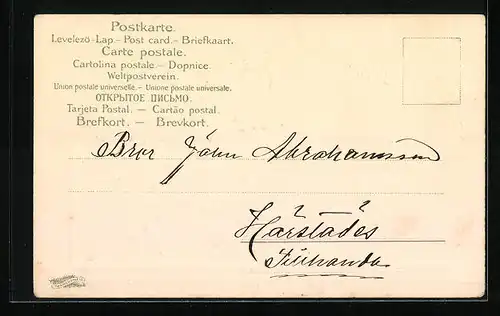 Postkarte.
Levelező-Lap.- Post card.- Briefkaart.
Carte postale.
Cartolina postale. - Dopnice.
Weltpostverein.
Union postale universelle. - Unione postale universale.
ОТКРЫТОЕ ПИСЬМО.
Tarjeta Postal. — Cartão postal.
Brefkort. — Brevkort.
Bror John Abrahamsson
Harstades